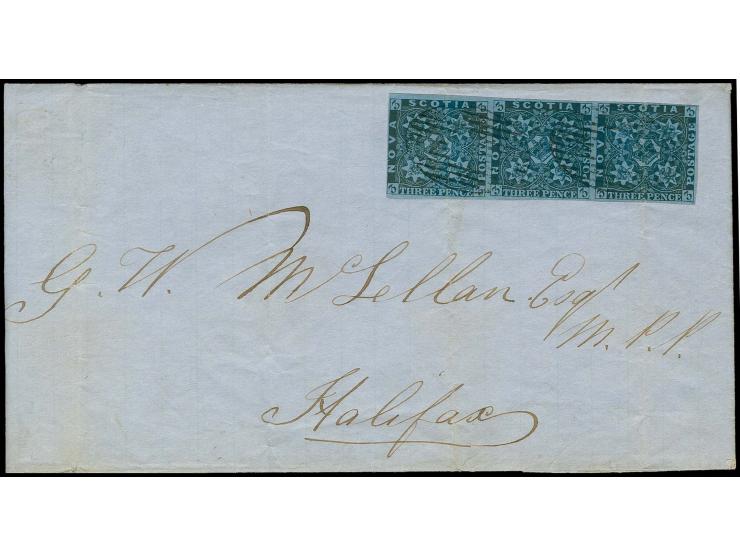 NOVA SCOTIA POSTAGE THREE PENCE
NOVA SCOTIA POSTAGE THREE PENCE
NOVA SCOTIA POSTAGE THREE PENCE
G. W. McLellan. Esqr
M.P.P.
Halifax